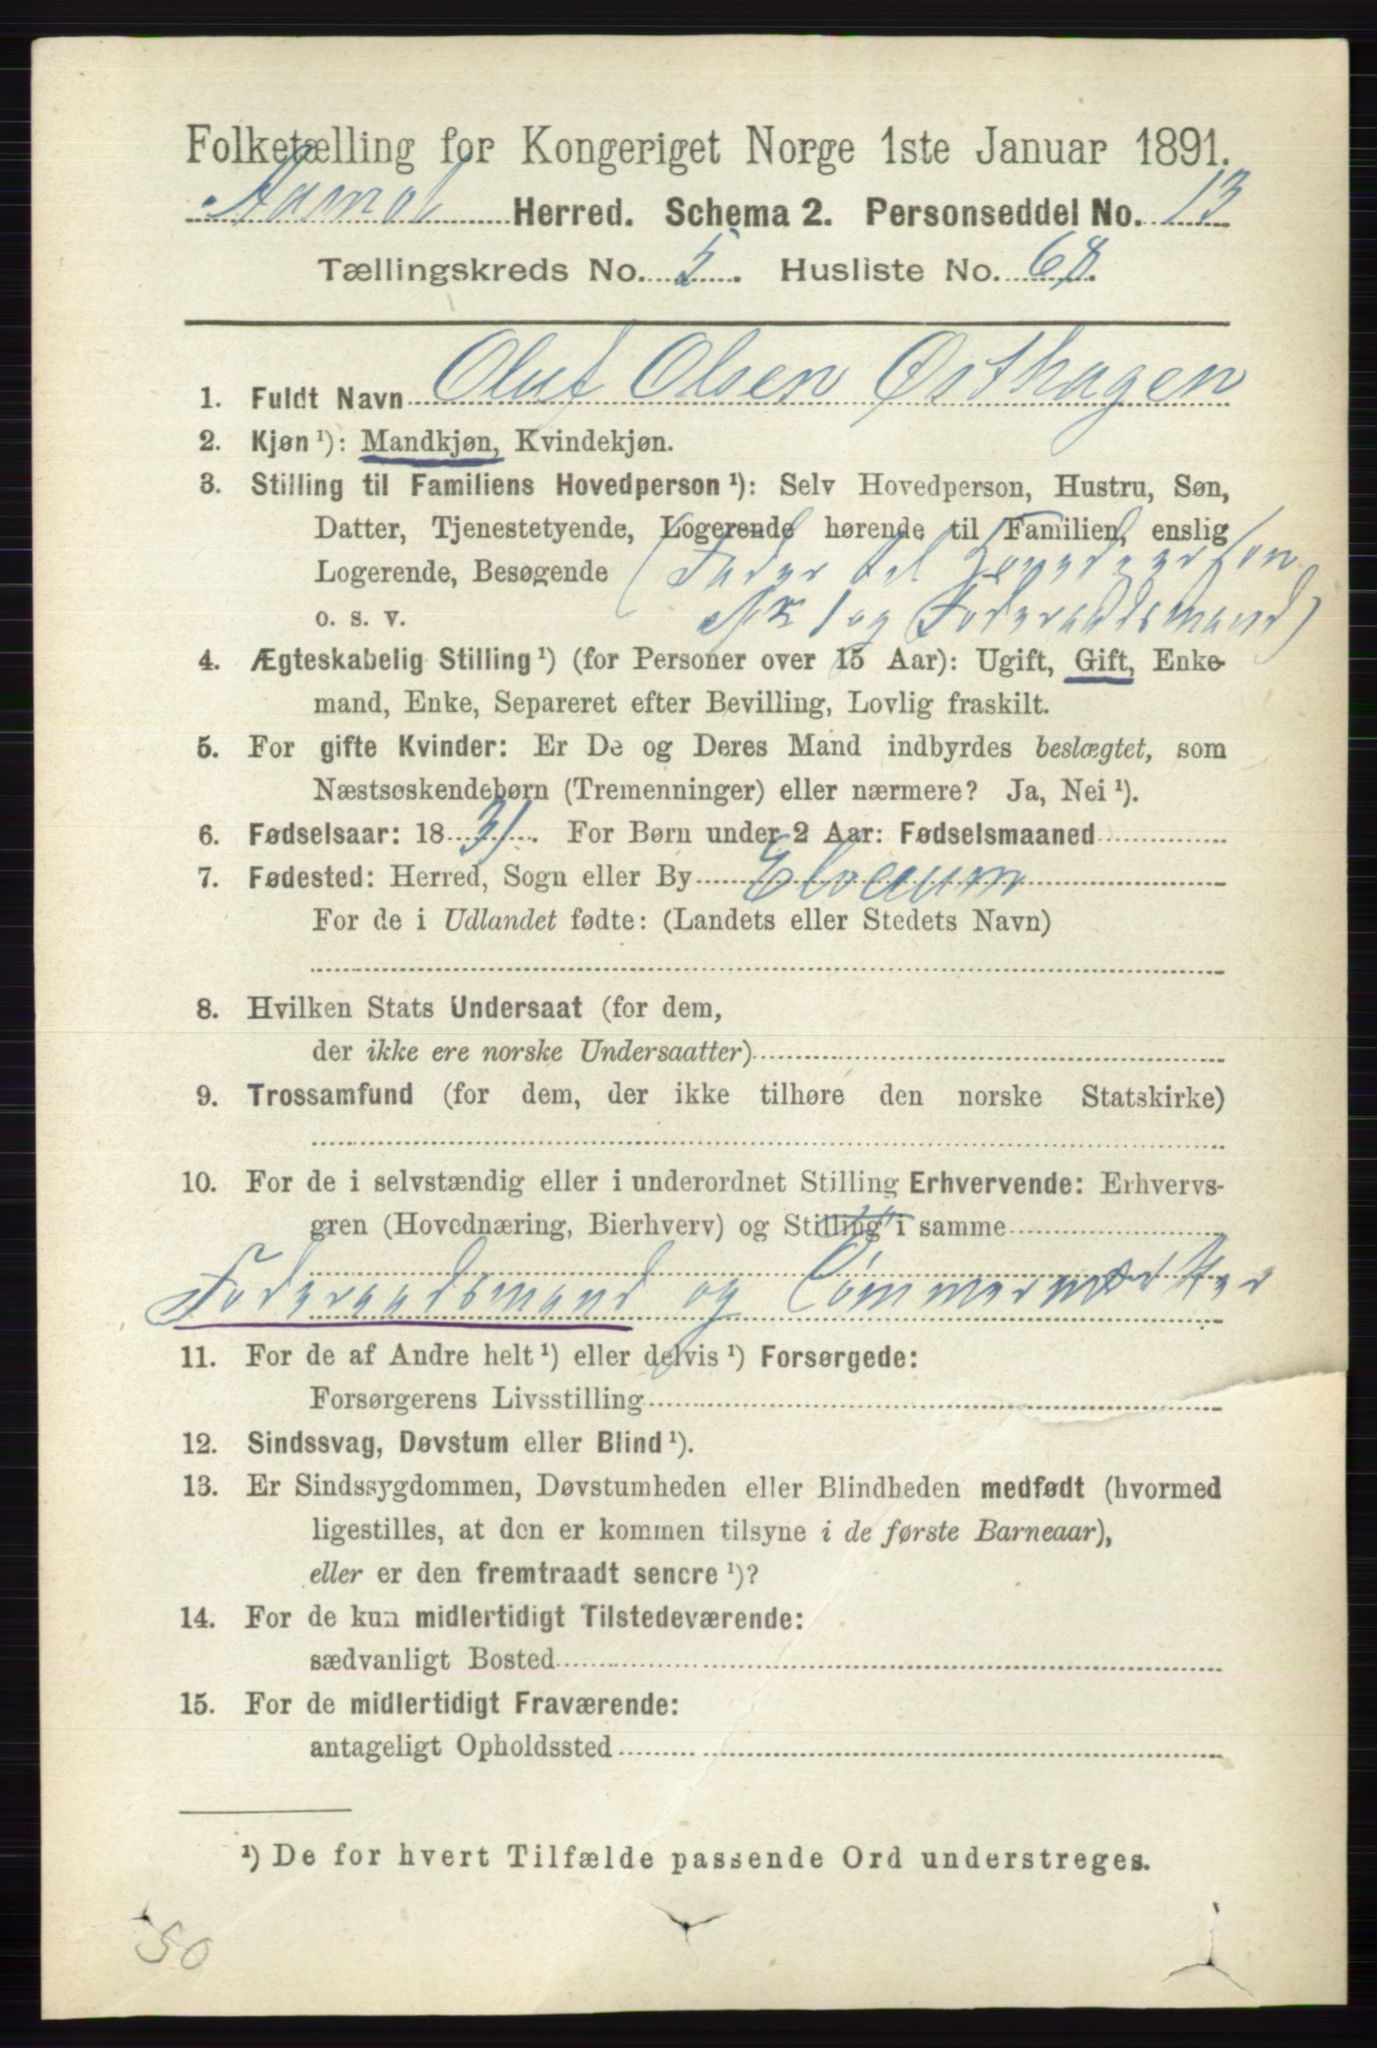 Folketælling for Kongeriget Norge 1ste Januar 1891.
Aamot Herred. Schema 2. Personseddel No. 13
Tællingskreds No. 5. Husliste No. 68.
1. Fuldt Navn Oluf Olsen Østhagen
2. Kjøn ¹): Mandkjøn, Kvindekjøn.
3. Stilling til Familiens Hovedperson ¹): Selv Hovedperson, Hustru, Søn,
Datter, Tjenestetyende, Logerende hørende til Familien, enslig
Logerende, Besøgende (Fader til Hovedperson
o. s. v. No 1 og Føderaadsmand)
4. Ægteskabelig Stilling ¹) (for Personer over 15 Aar): Ugift, Gift, Enke-
mand, Enke, Separeret efter Bevilling, Lovlig fraskilt.
5. For gifte Kvinder: Er De og Deres Mand indbyrdes beslægtet, som
Næstsøskendebørn (Tremenninger) eller nærmere? Ja, Nei ¹).
6. Fødselsaar: 1831. For Børn under 2 Aar: Fødselsmaaned
7. Fødested: Herred, Sogn eller By Elverum
For de i Udlandet fødte: (Landets eller Stedets Navn)
8. Hvilken Stats Undersaat (for dem,
der ikke ere norske Undersaatter)
9. Trossamfund (for dem, der ikke tilhøre den norske Statskirke)
10. For de i selvstændig eller i underordnet Stilling Erhvervende: Erhvervs-
gren (Hovednæring, Bierhverv) og Stilling i samme
Føderaadsmand og Tømmermærker
11. For de af Andre helt ¹) eller delvis ¹) Forsørgede:
Forsørgerens Livsstilling
12. Sindssvag, Døvstum eller Blind ¹).
13. Er Sindssygdommen, Døvstumheden eller Blindheden medfødt (hvormed
ligestilles, at den er kommen tilsyne i de første Barneaar),
eller er den fremtraadt senere ¹)?
14. For de kun midlertidigt Tilstedeværende:
sædvanligt Bosted
15. For de midlertidigt Fraværende:
antageligt Opholdssted
¹) De for hvert Tilfælde passende Ord understreges.
50